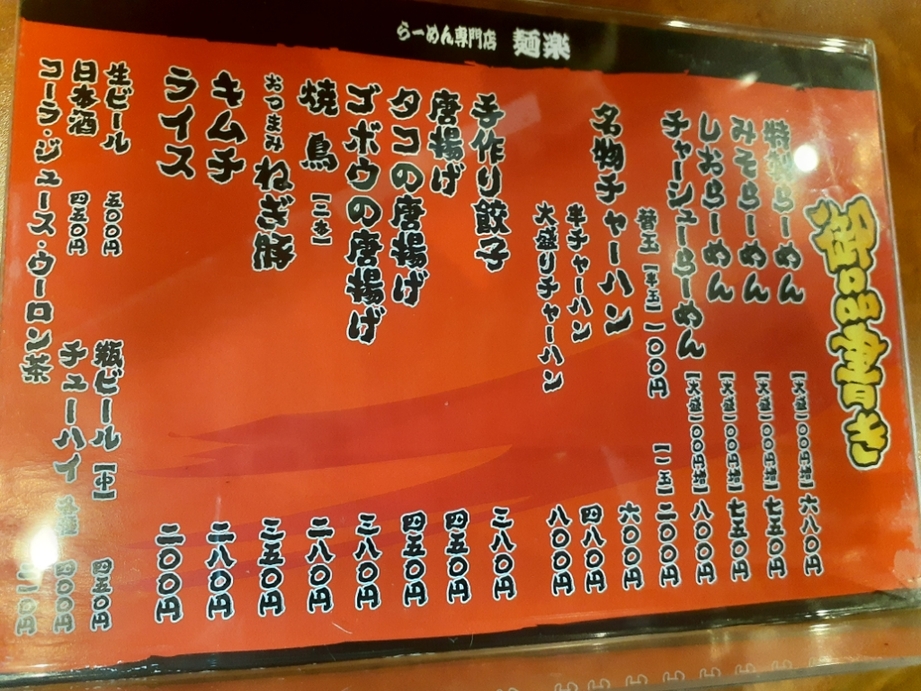 らーめん専門店 麺楽
御品書き
特製らーめん 【大盛一〇〇円増】 六八〇円
みそらーめん 【大盛一〇〇円増】 七五〇円
しおらーめん 【大盛一〇〇円増】 七五〇円
チャーシューらーめん 【大盛一〇〇円増】 八〇〇円
替玉 【半玉】 一〇〇円 【一玉】 二〇〇円
名物チャーハン 六〇〇円
半チャーハン 四八〇円
大盛りチャーハン 八〇〇円
手作り餃子 三八〇円
唐揚げ 四五〇円
タコの唐揚げ 四五〇円
ゴボウの唐揚げ 三八〇円
焼鳥 【二本】 二八〇円
おつまみねぎ豚 三五〇円
キムチ 二八〇円
ライス 二〇〇円
生ビール 五〇〇円 瓶ビール 【中】 四五〇円
日本酒 四五〇円 チューハイ 四〇〇円
コーラ・ジュース・ウーロン茶